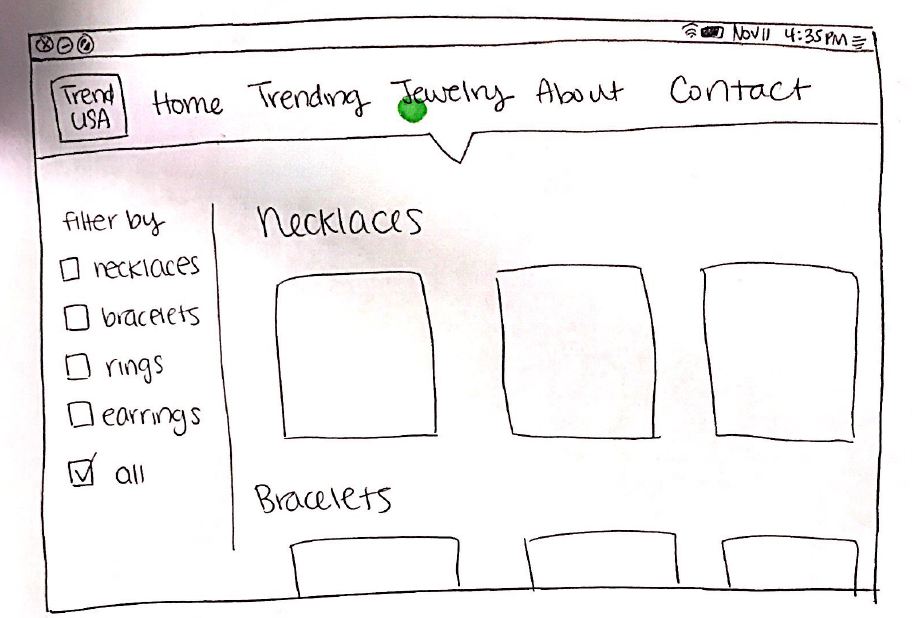 Nov 11 4:35PM
Trend
USA
Home Trending Jewelry About Contact
filter by
necklaces
bracelets
rings
earrings
all
Necklaces
Bracelets